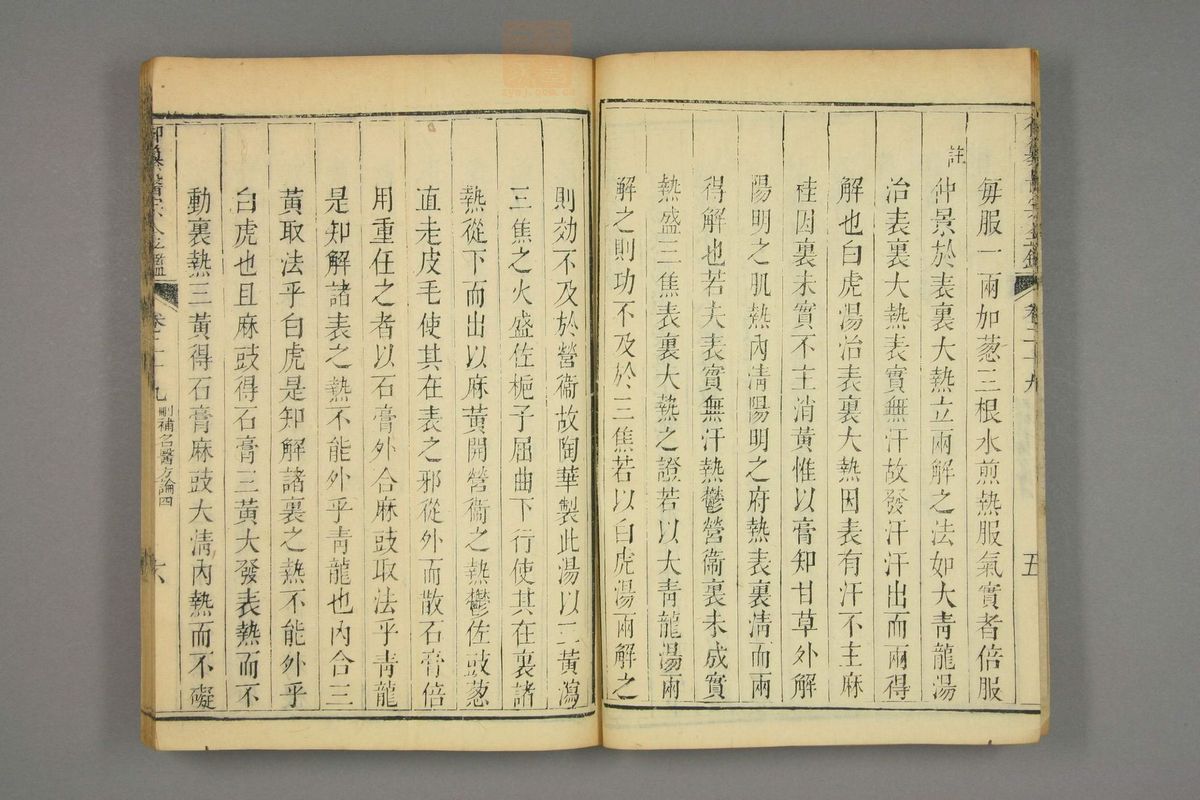 每服一兩加葱三根水煎熱服氣實者倍服
註
仲景於表裏大熱立兩解之法如大青龍湯
治表裏大熱表實無汗故發汗汗出而兩得
解也白虎湯治表裏大熱因表有汗不主麻
桂因裏未實不主消黃惟以膏知甘草外解
陽明之肌熱內清陽明之府熱表裏清而兩
得解也若夫表實無汗熱鬱營衞裏未成實
熱盛三焦表裏大熱之證若以大青龍湯兩
解之則功不及於三焦若以白虎湯兩解之
則効不及於營衞故陶華製此湯以三黃瀉
三焦之火盛佐梔子屈曲下行使其在裏諸
熱從下而出以麻黃開營衞之熱鬱佐豉葱
直走皮毛使其在表之邪從外而散石膏倍
用重任之者以石膏外合麻豉取法乎青龍
是知解諸表之熱不能外乎青龍也內合三
黃取法乎白虎是知解諸裏之熱不能外乎
白虎也且麻豉得石膏三黃大發表熱而不
動裏熱三黃得石膏麻豉大清內熱而不礙
御纂醫宗金鑑 卷二十九 刪補名醫方論四 六